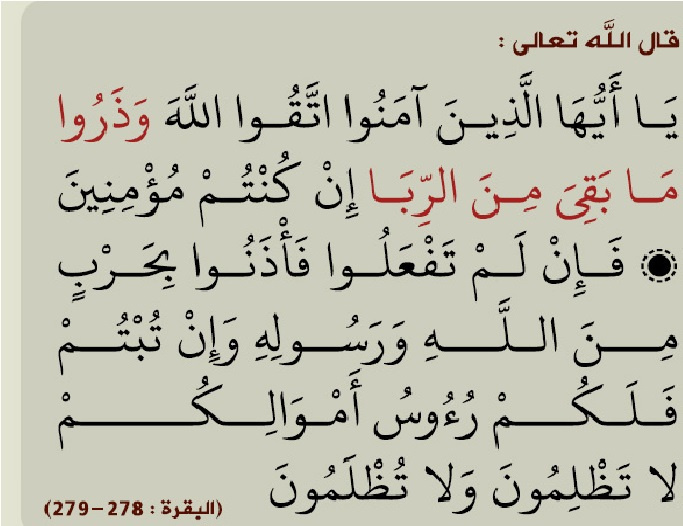 قال الله تعالى :
يَا أَيُّهَا الَّذِينَ آمَنُوا اتَّقُوا اللَّهَ وَذَرُوا
مَا بَقِيَ مِنَ الرِّبَا إِنْ كُنْتُمْ مُؤْمِنِينَ
فَإِنْ لَمْ تَفْعَلُوا فَأْذَنُوا بِحَرْبٍ
مِنَ اللَّهِ وَرَسُولِهِ وَإِنْ تُبْتُمْ
فَلَكُمْ رُءُوسُ أَمْوَالِكُمْ
لا تَظْلِمُونَ وَلا تُظْلَمُونَ
(البقرة : 278-279)